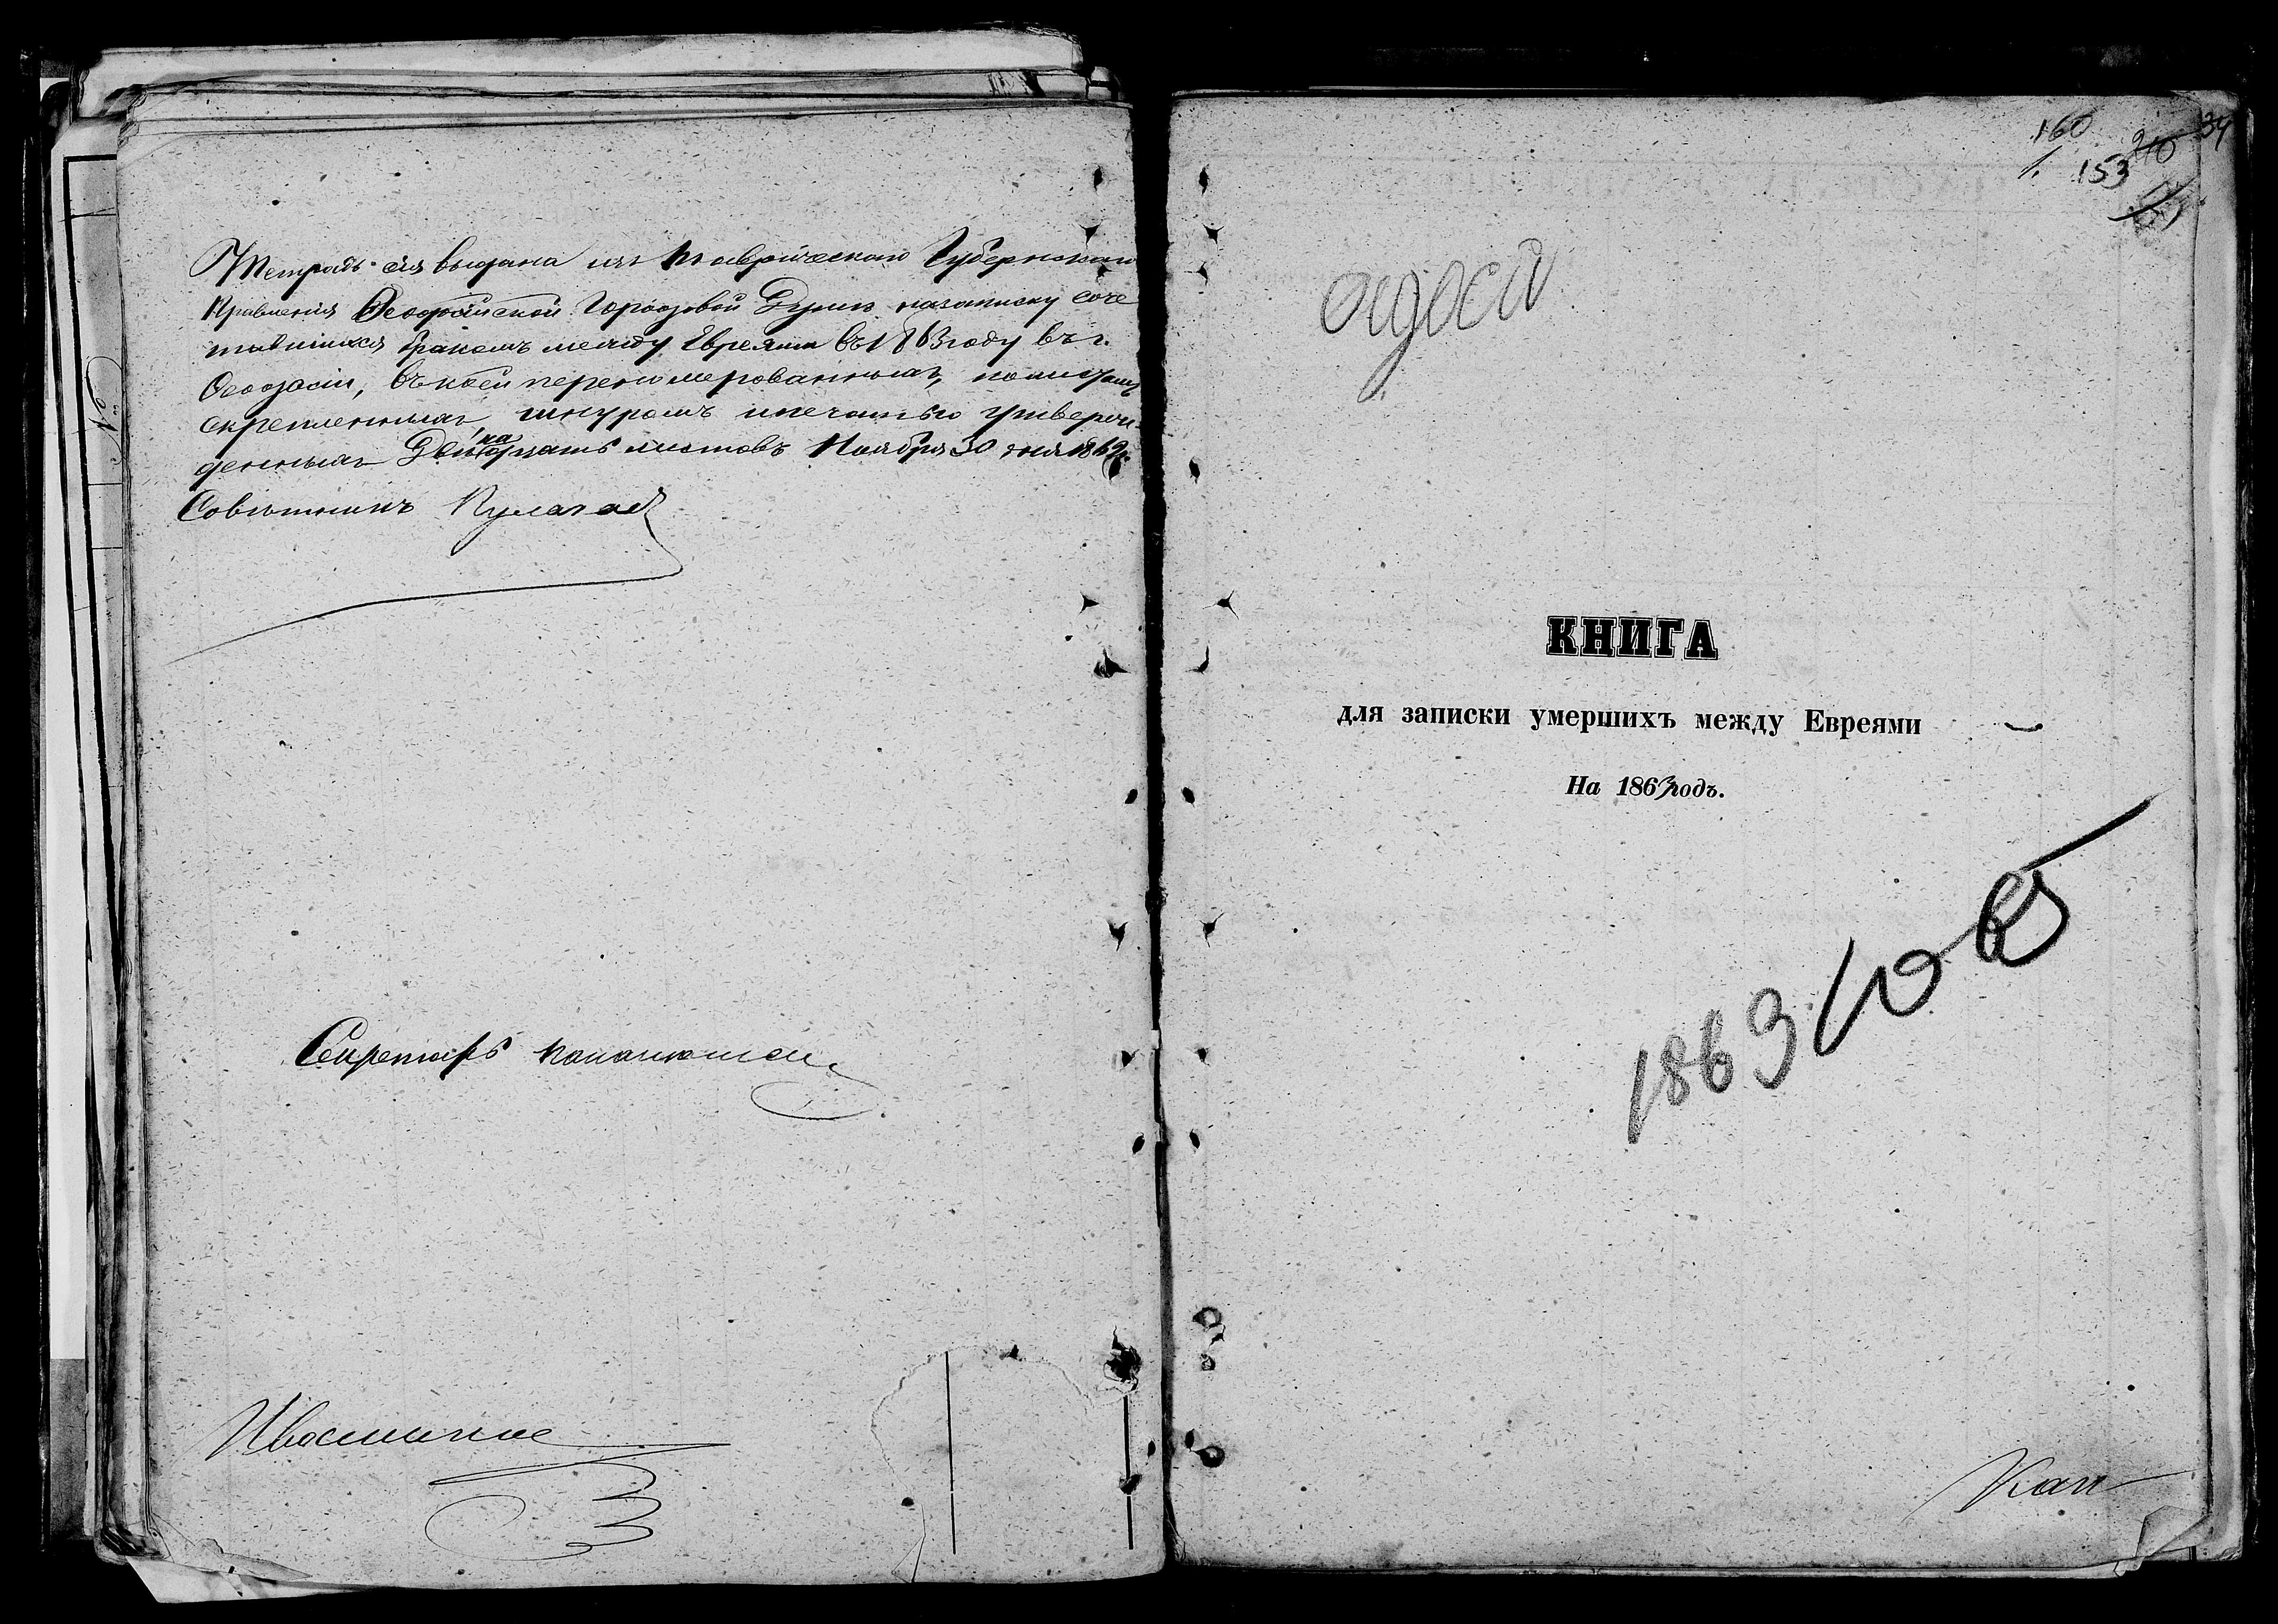 Тетрадь сія выдана изъ Таврическаго Губернскаго
Правленія Ѳеодосійской Городовой Думѣ на записку соче
тавшихся бракомъ между Евреями въ 1863 году въ г.
Ѳеодосіи, въ коей перенумерованныхъ, по листамъ
скрепленныхъ шнуромъ и печатью утверж-
денныхъ Двѣнадцать листовъ Ноября 30 дня 1862 г.
Совѣтникъ
Секретарь
160
1. 153 210 34
КНИГА
для записки умершихъ между Евреями
На 1863 годъ.
1863
Кап